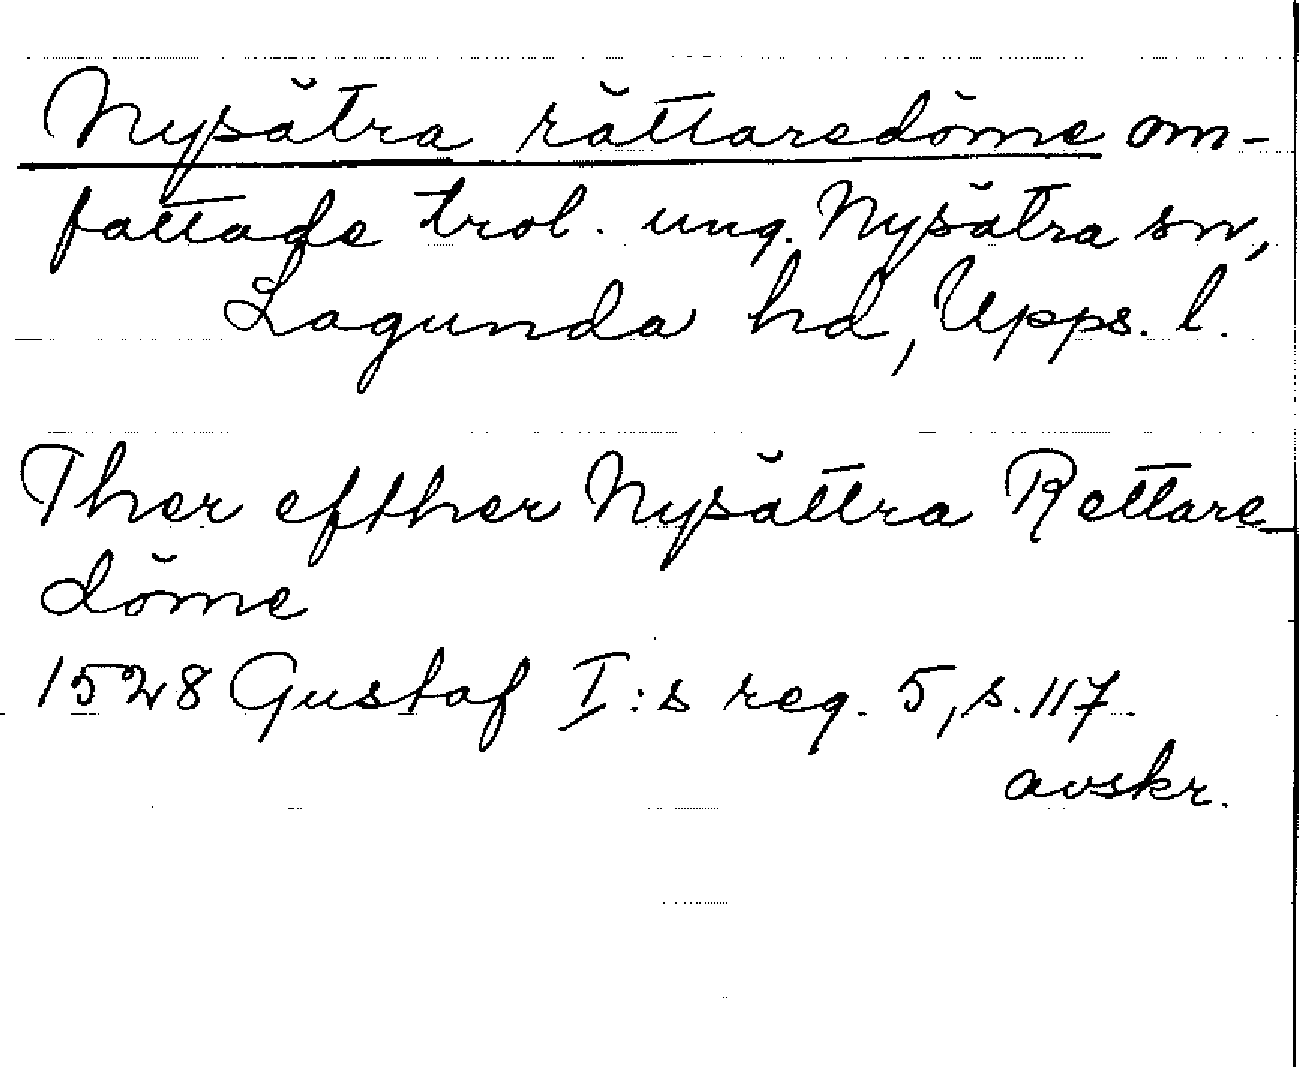 Nysätra rättaredöme om-
fattade trol. ung. Nysätra sn,
Lagunda hd, Upps. l.
Ther efther Nysättra Rettare
döme
1528 Gustaf I:s reg. 5, s. 117
avskr.